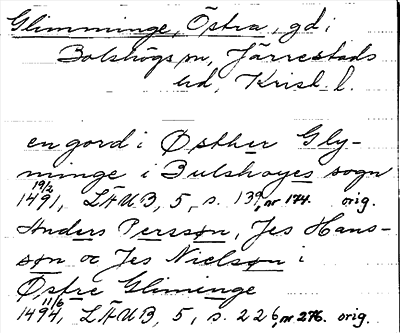 Glimminge, Östra, gd i
Bolshögs sn, Järrestads
hd, Krist. l.
en gord i Østher Gly-
minge i Bulshøyes sogn
19/2
1491, LÄUB, 5, s. 139, nr 174. orig.
Anders Perssøn, Jes Hans-
søn oc Jes Nielsøn i
Østre Gliminge
11/6
1494, LÄUB, 5, s. 226, nr 276. orig.